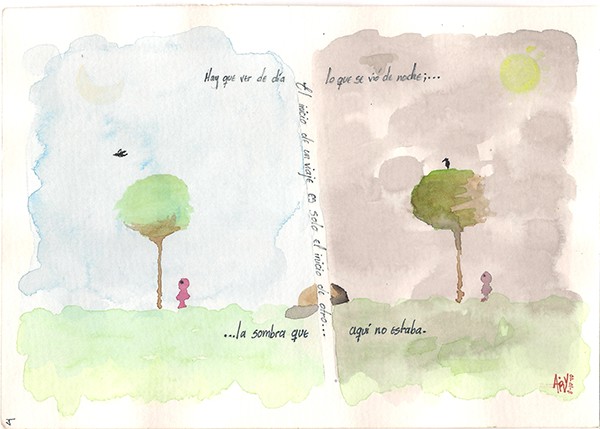 Hay que ver de día lo que se vió de noche;...
El inicio de un viaje es solo el inicio de otro...
...la sombra que aquí no estaba.